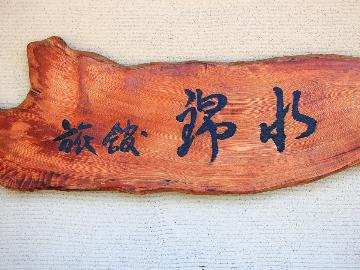 旅館 錦水